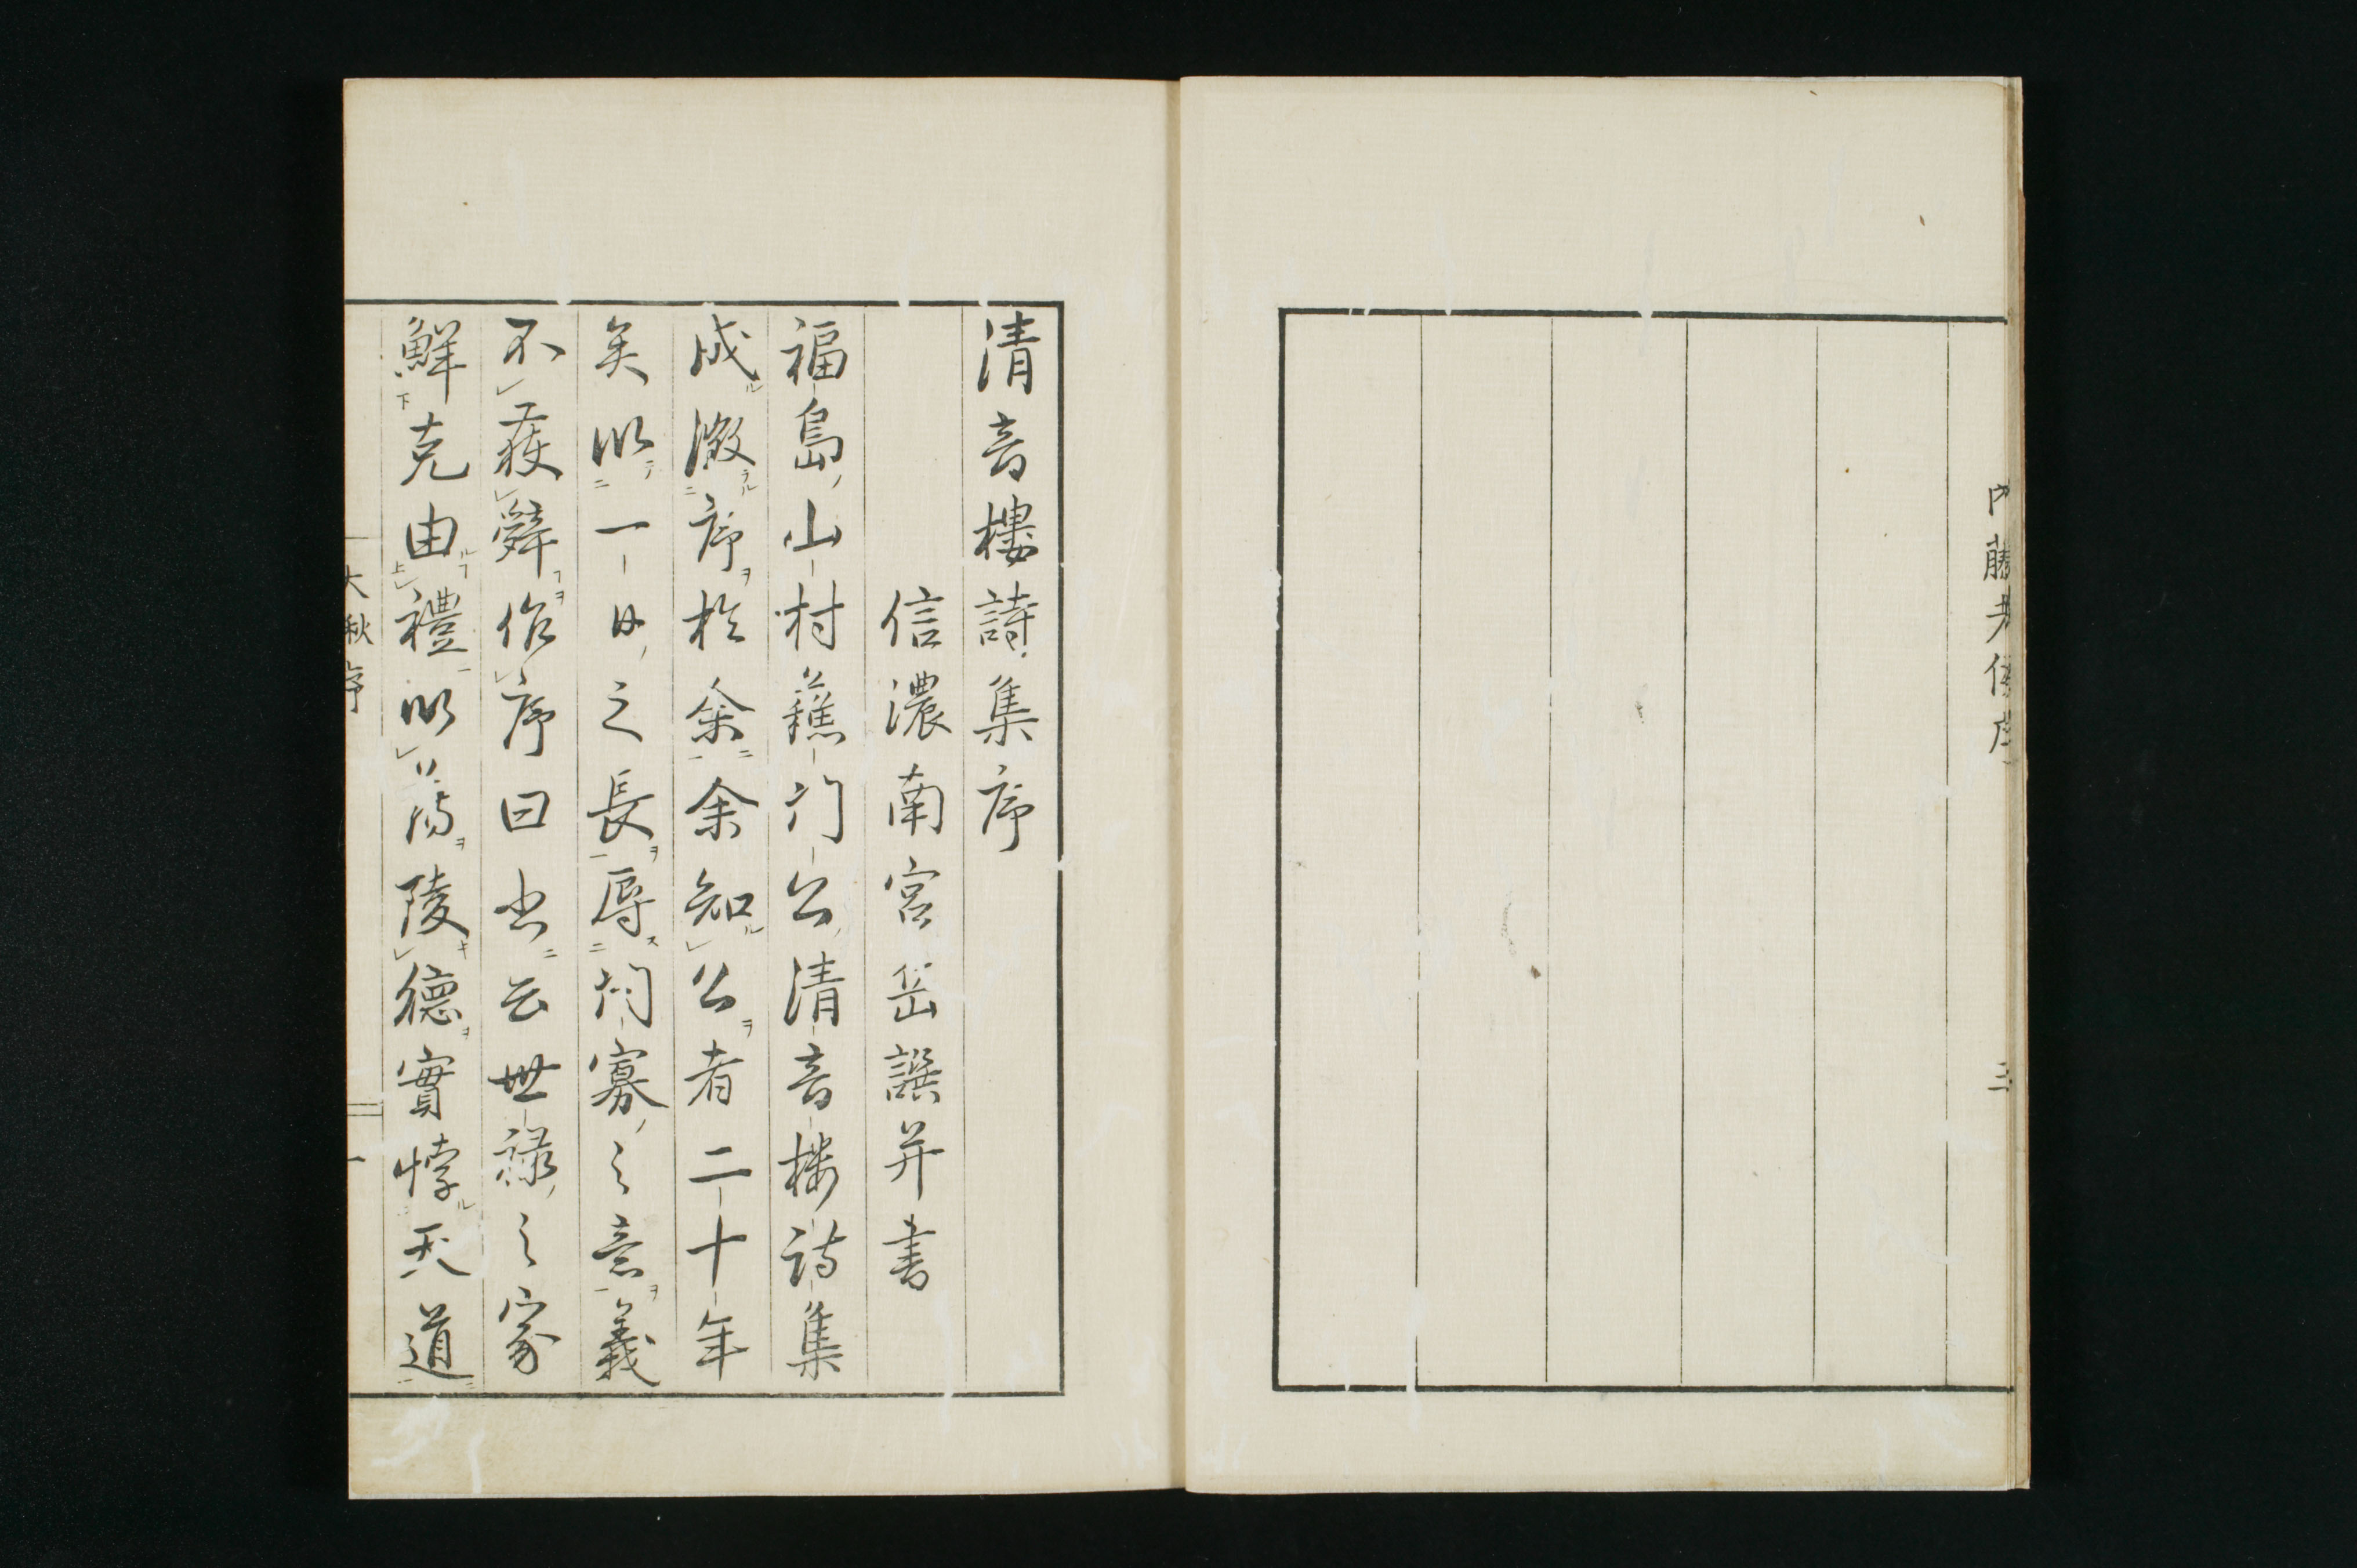 内藤
三
清音樓詩集序
信濃南宮岳譔并書
福島山村蘓門公清音楼詩集
成徴序於余余知公者二十年
矣以一日之長辱詢寡之意義
不獲辤作序曰書云世禄之家
鮮克由禮以蕩陵德實悖天道
大秋序
一